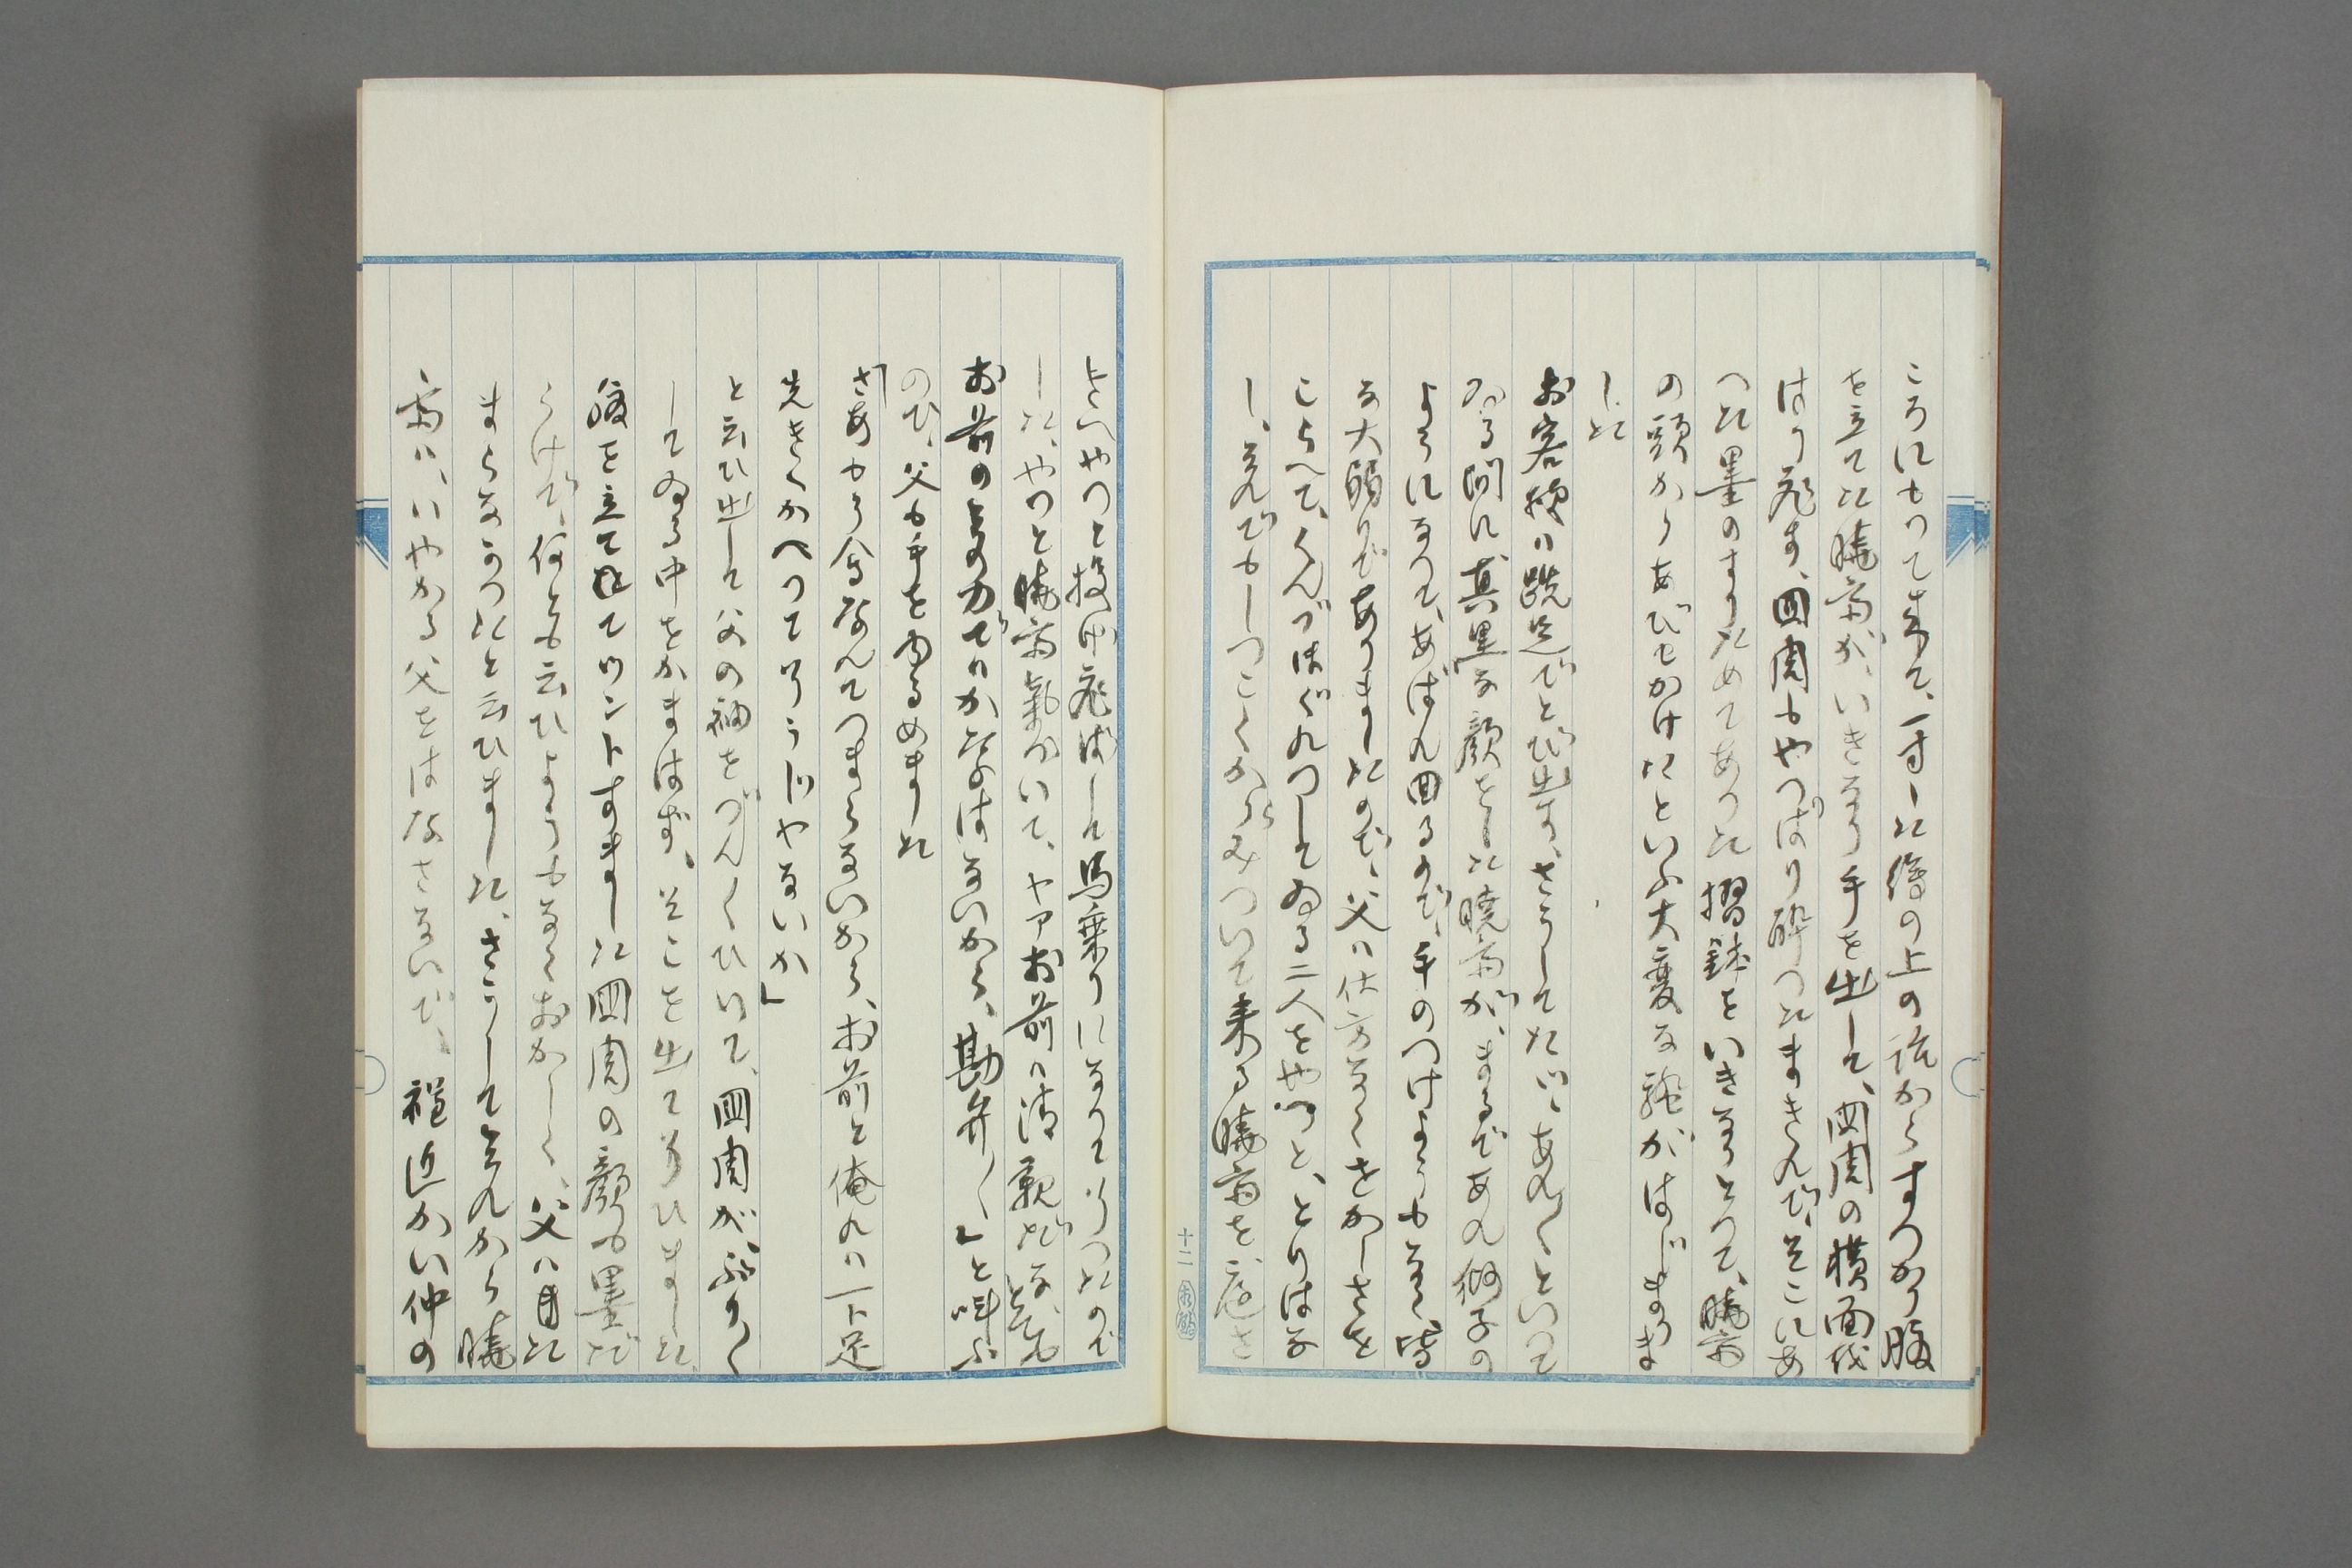 ころにもつて来て、一寸した縁の上の疵からすつかり腹
を立てた暁斎が、いきなり手を出して、圓周の横面を
はり飛す、圓周もやつぱり酔つたまぎれで、そこにあ
つた墨のすりためてあつた摺鉢をいきなりとつて、暁斎
の頭からあびせかけたといふ大変な騒がはじまりま
した
お客様は跣足でとび出す、さうしてたい、あん〱といつて
ゐる間に真黒な顔をした暁斎が、まるであれ獅子の
ようになつて、あばれ回るので、手のつけようもなく、皆
な大弱りでありましたので、父は仕方なくをかしさを
こらへて、くんづほぐれつしてゐる二人をやつと、とりはな
し、それでもしつこくからみついて来る暁斎を、庭さ
きへやつと投げ飛ばして馬乗りになつてしまつたので
した、やつと暁斎氣がついて、ヤアお前は清親だな、とても
お前の力ではかなはないから、勘弁〱」と叫ぶ
ので、父も手をゆるめました
「さあもう会なんてつまらないから、お前と俺れは一ト足
先きにかへつてしまうじやないか」
と云ひ出して父の袖をづん〱ひいて、圓周がぷり〱
してゐる中をかまはず、そこを出てしまひました
腹を立てゝてツントすました圓周の顔も墨だ
らけで、何とも云ひようもなくおかしく、父は自た
まらなかつたと云ひました、さうしてそれから暁
斎は、いやがる父をはなさないで、裃近かい仲の
十二